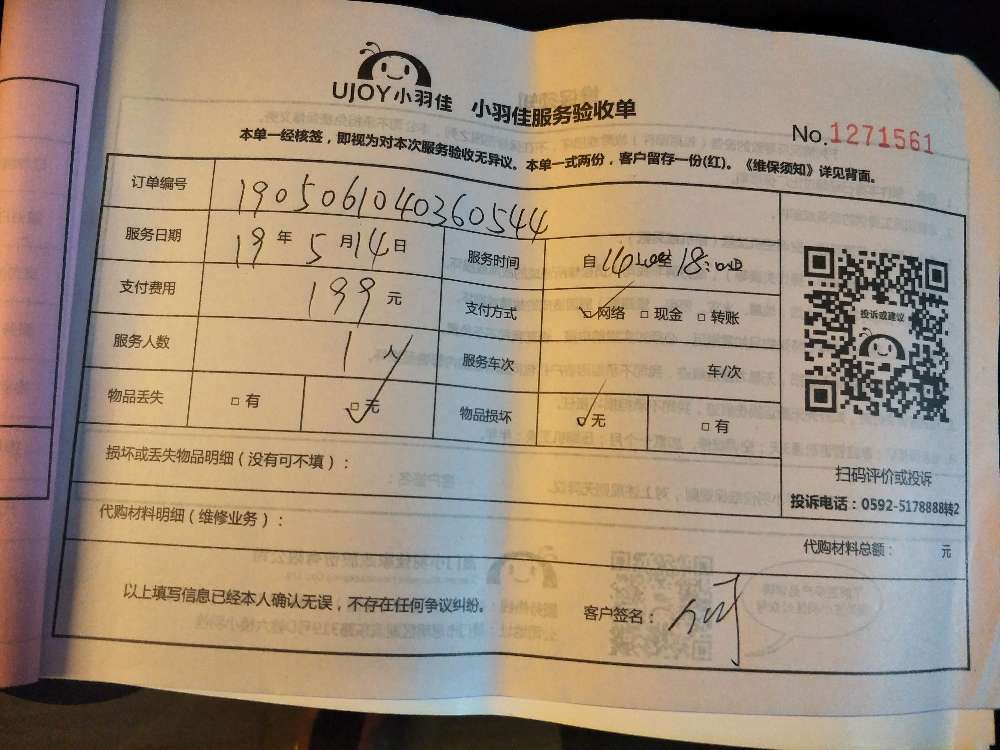 UJOY小羽佳 小羽佳服务验收单
No.1271561
本单一经核签，即视为对本次服务验收无异议。本单一式两份，客户留存一份(红)。《维保须知》详见背面。
订单编号 19050610403605​44
服务日期 19年5月14日 服务时间 自 至18:00
支付费用 199元 支付方式 ☑网络 □现金 □转账
服务人数 1人 服务车次 车/次
物品丢失 □有 ☑无 物品损坏 ☑无 □有
投诉或建议
扫码评价或投诉
投诉电话：0592-5178888转2
损坏或丢失物品明细（没有可不填）：
代购材料明细（维修业务）：
代购材料总额： 元
以上填写信息已经本人确认无误，不存在任何争议纠纷。
客户签名：